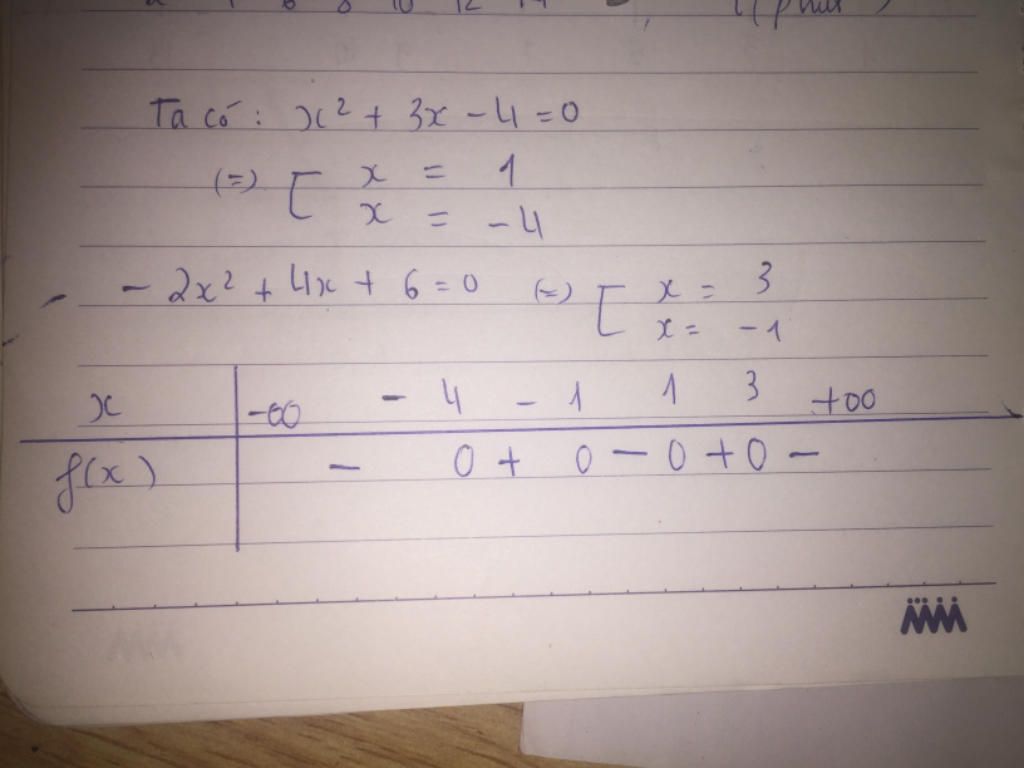 8 10 12 14
Ta có: x² + 3x - 4 = 0
(=) [ x = 1
x = -4
- 2x² + 4x + 6 = 0 (=) [ x = 3
x = -1
x -∞ - 4 - 1 1 3 +∞
f(x) - 0 + 0 - 0 + 0 -